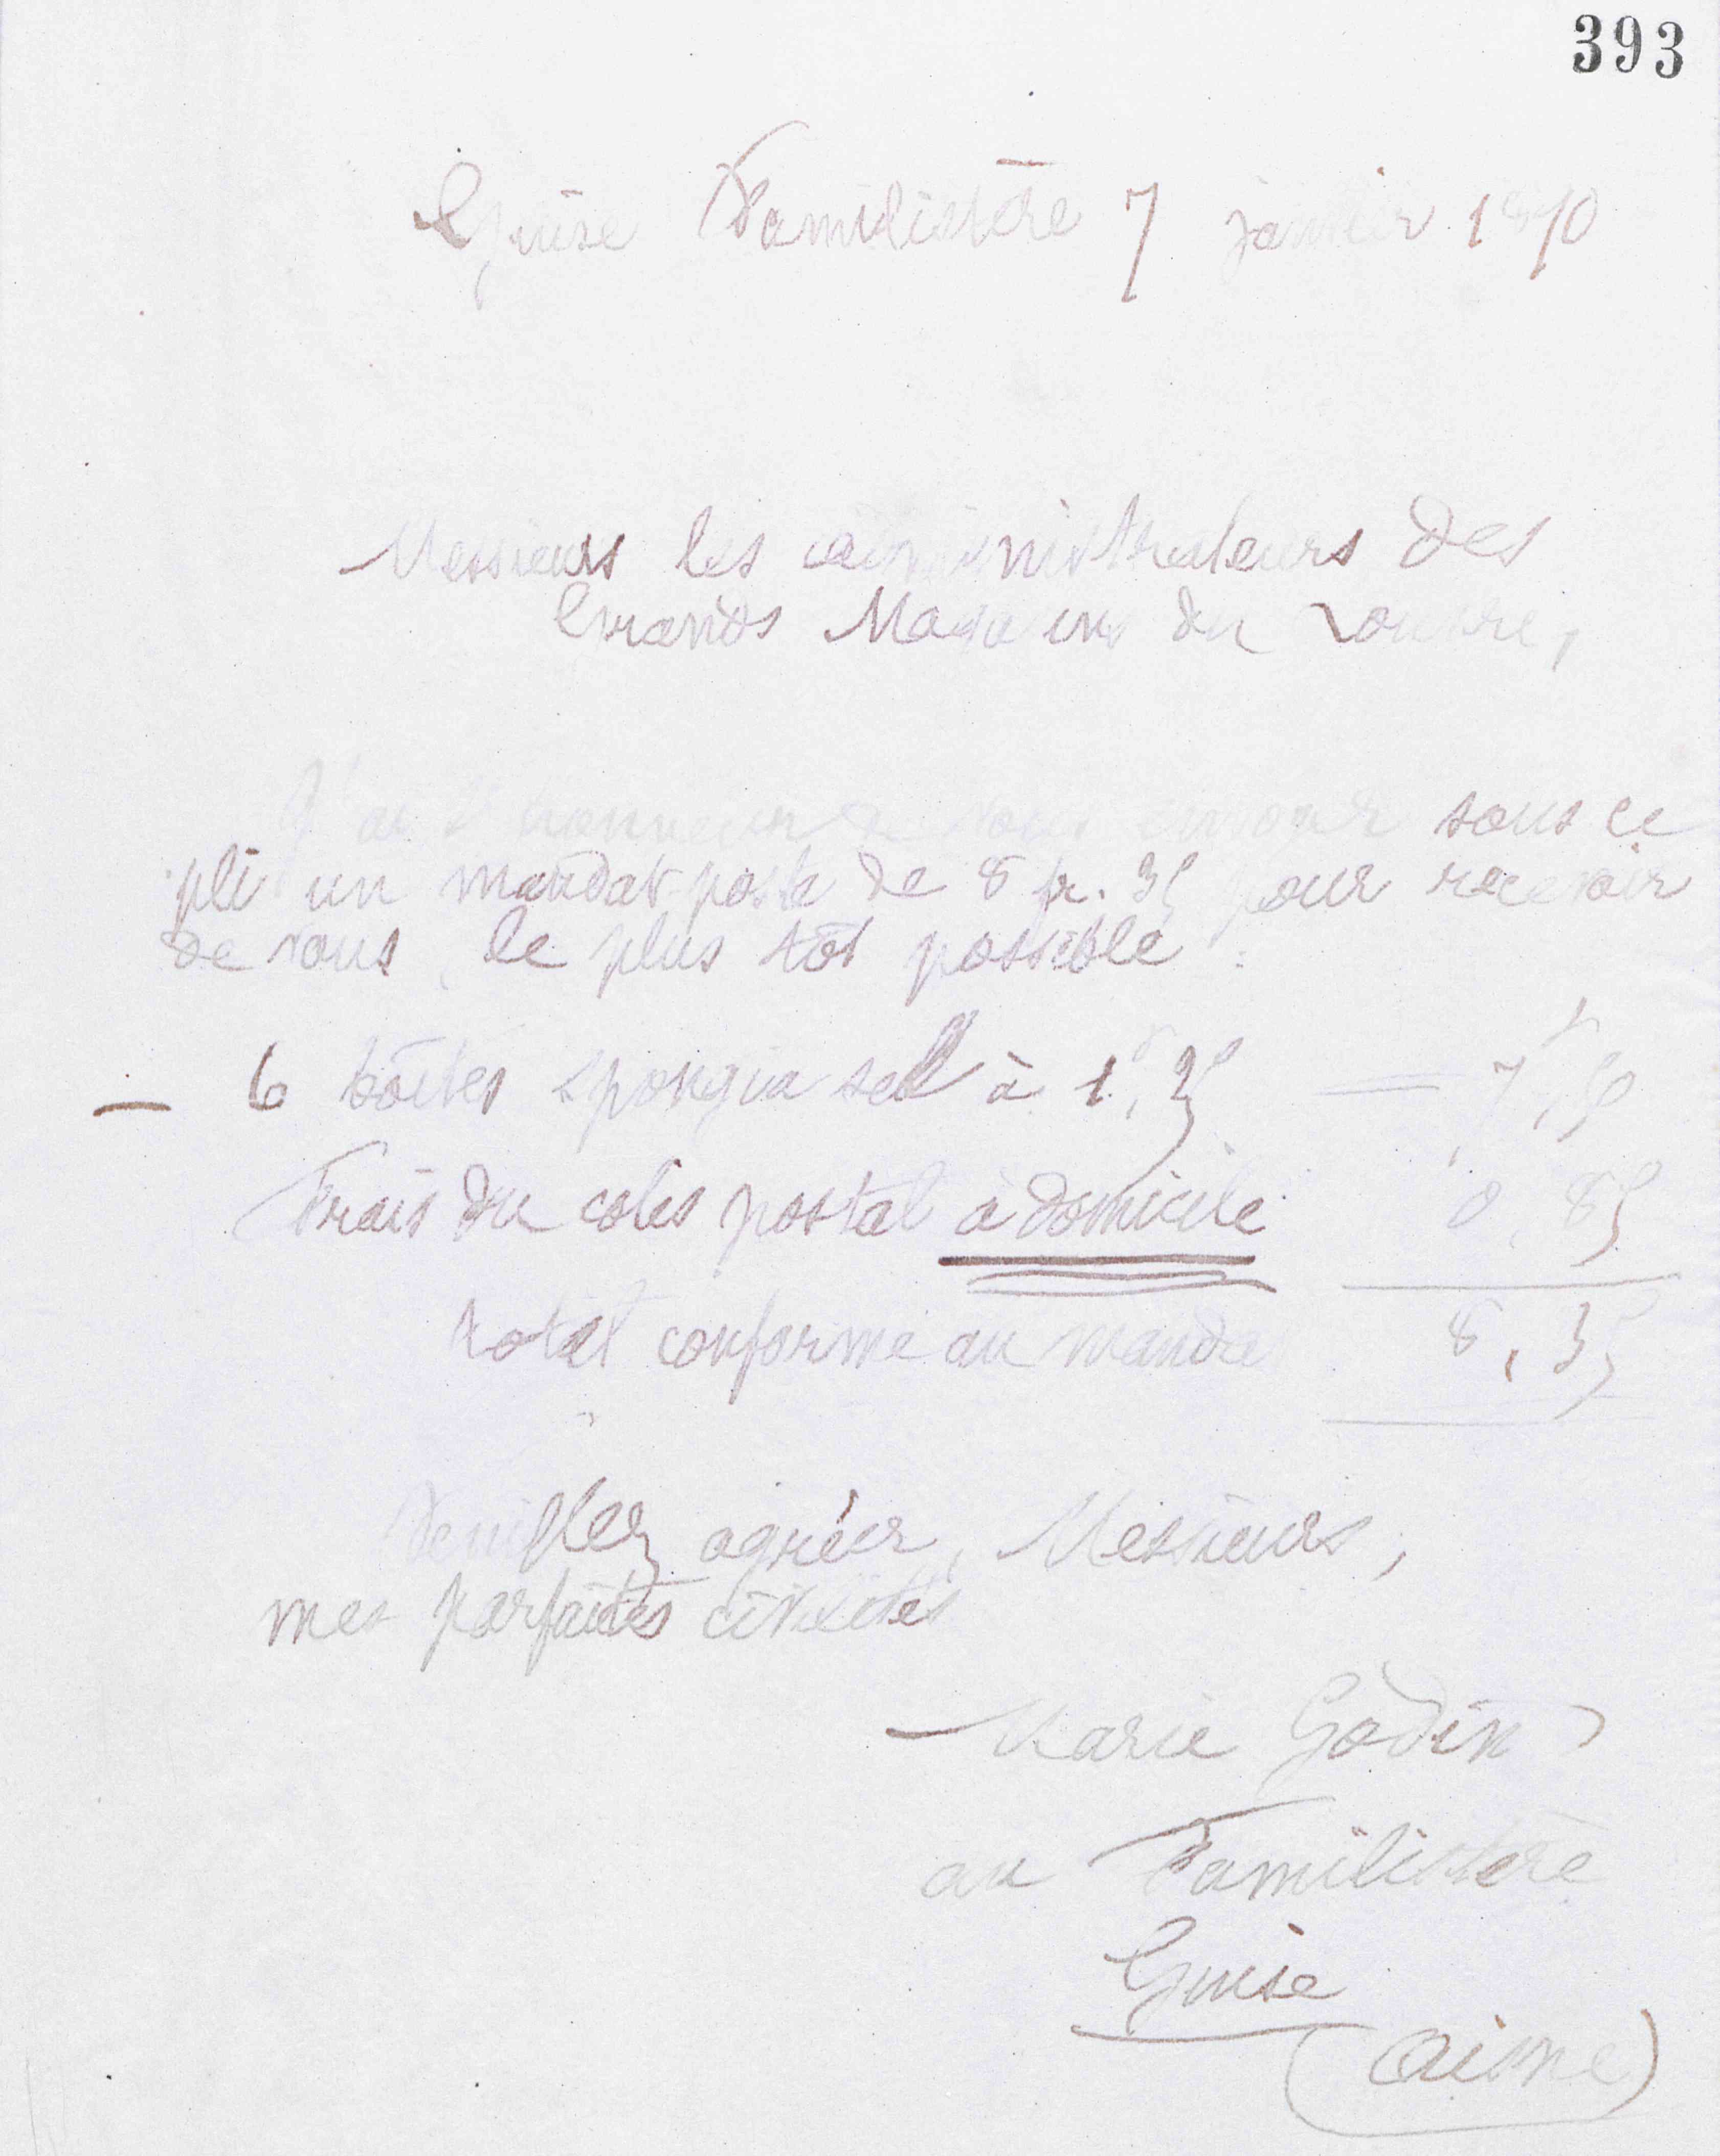 393
Guise Familistère 7 janvier 1890
Messieurs les administrateurs des
Grands Magasins du Louvre,
J'ai l'honneur de vous envoyer sous ce
pli un mandat poste de 8 fr. 35 pour recevoir
de vous, le plus tôt possible :
— 6 boîtes spongia sel à 1f,25 = 7f,50
Frais du colis postal à domicile 0,85
total conforme au manda 8,35
Veuillez agréer, Messieurs,
mes parfaites civilités
Marie Godin
au Familistère
Guise
(Aisne)